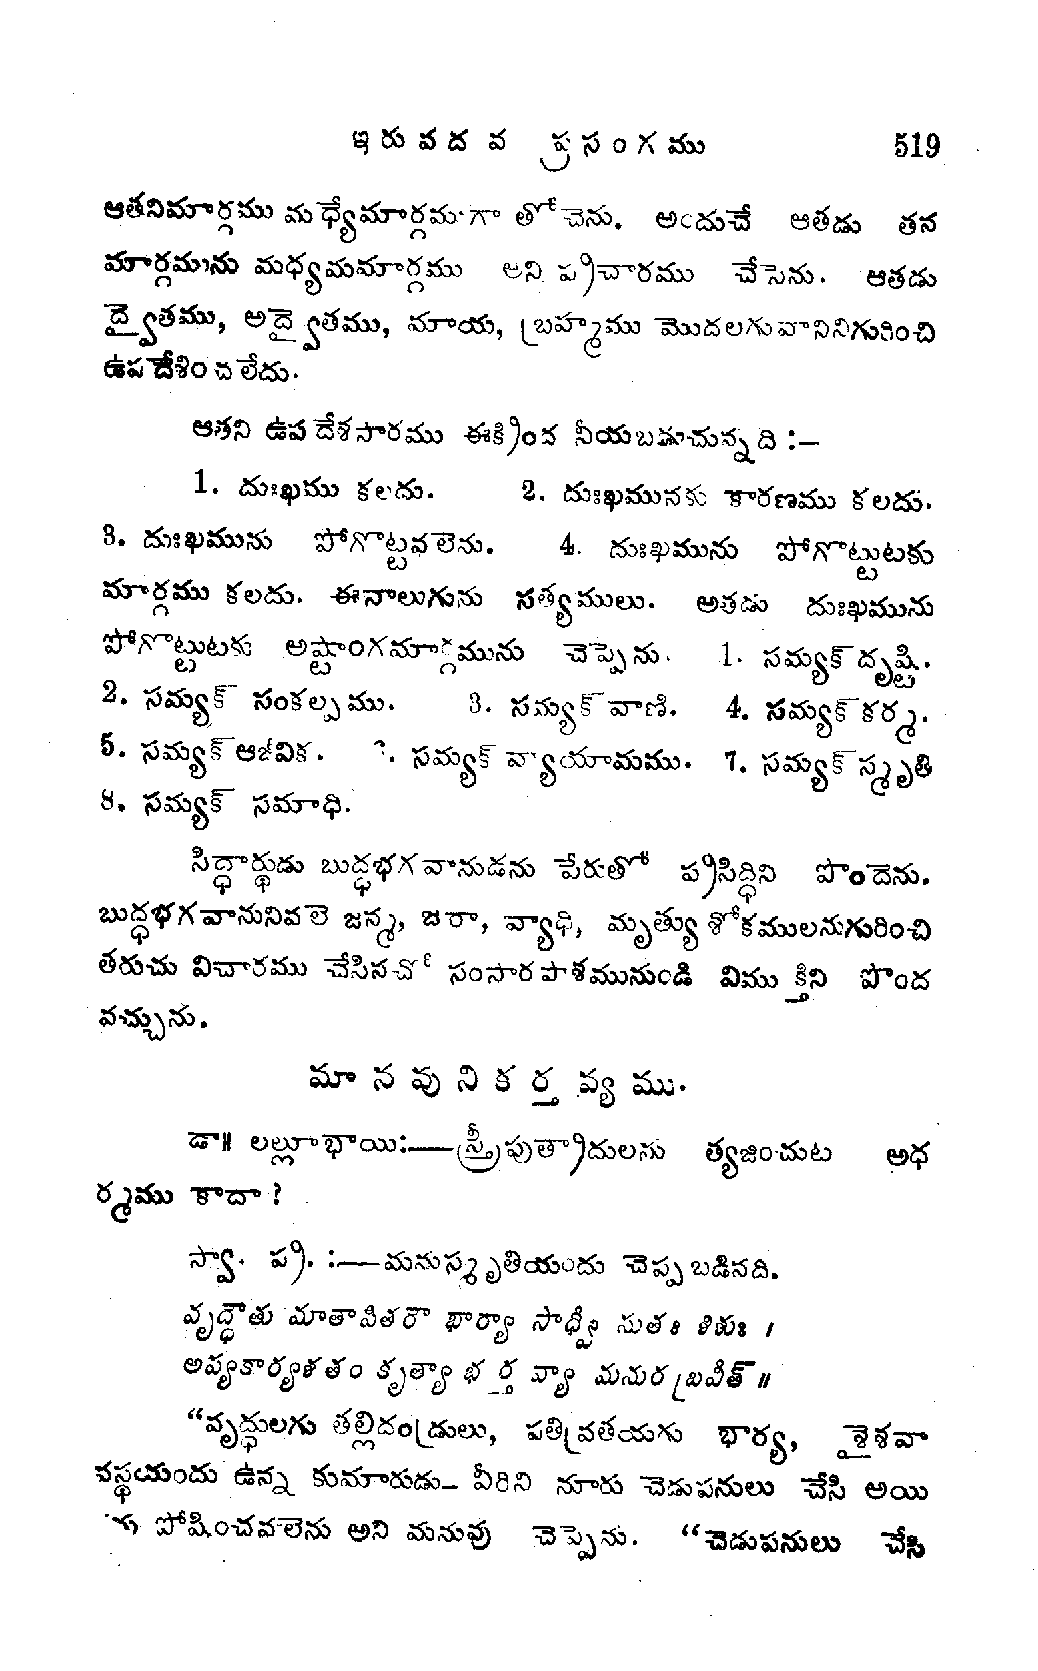 ఇరువదవ ప్రసంగము 519
ఆతనిమార్గము మధ్యేమార్గముగా తోచెను. అందుచే ఆతడు తన
మార్గమును మధ్యమమార్గము అని ప్రచారము చేసెను. ఆతడు
ద్వైతము, అద్వైతము, మాయ, బ్రహ్మము మొదలగువానినిగురించి
ఉపదేశించలేదు.
ఆతని ఉపదేశసారము ఈక్రింద నీయబడుచున్నది :—
1. దుఃఖము కలదు. 2. దుఃఖమునకు కారణము కలదు.
3. దుఃఖమును పోగొట్టవలెను. 4. దుఃఖమును పోగొట్టుటకు
మార్గము కలదు. ఈనాలుగును సత్యములు. అతడు దుఃఖమును
పోగొట్టుటకు అష్టాంగమార్గమును చెప్పెను. 1. సమ్యక్ దృష్టి.
2. సమ్యక్ సంకల్పము. 3. సమ్యక్ వాణి. 4. సమ్యక్ కర్మ.
5. సమ్యక్ ఆజీవిక. సమ్యక్ వ్యాయామము. 7. సమ్యక్ స్మృతి
8. సమ్యక్ సమాధి.
సిద్ధార్థుడు బుద్ధభగవానుడను పేరుతో ప్రసిద్ధిని పొందెను.
బుద్ధభగవానునివలె జన్మ, జరా, వ్యాధి, మృత్యు శోకములనుగురించి
తరుచు విచారము చేసినచో సంసారపాశమునుండి విముక్తిని పొంద
వచ్చును.
మానవునికర్తవ్యము.
డా॥ లల్లూభాయి:—స్త్రీపుత్రాదులను త్యజించుట అధ
ర్మము కాదా ?
స్వా. ప్ర. :—మనుస్మృతియందు చెప్పబడినది.
వృద్ధౌతు మాతాపితరౌ భార్యా సాధ్వీ సుతః శిశుః ।
అప్యకార్యశతం కృత్యా భర్తవ్యా మనురబ్రవీత్ ॥
“వృద్ధులగు తల్లిదండ్రులు, పతివ్రతయగు భార్య, శైశవా
వస్థయందు ఉన్న కుమారుడు- వీరిని నూరు చెడుపనులు చేసి అయి
పోషించవలెను అని మనువు చెప్పెను. “చెడుపనులు చేసి